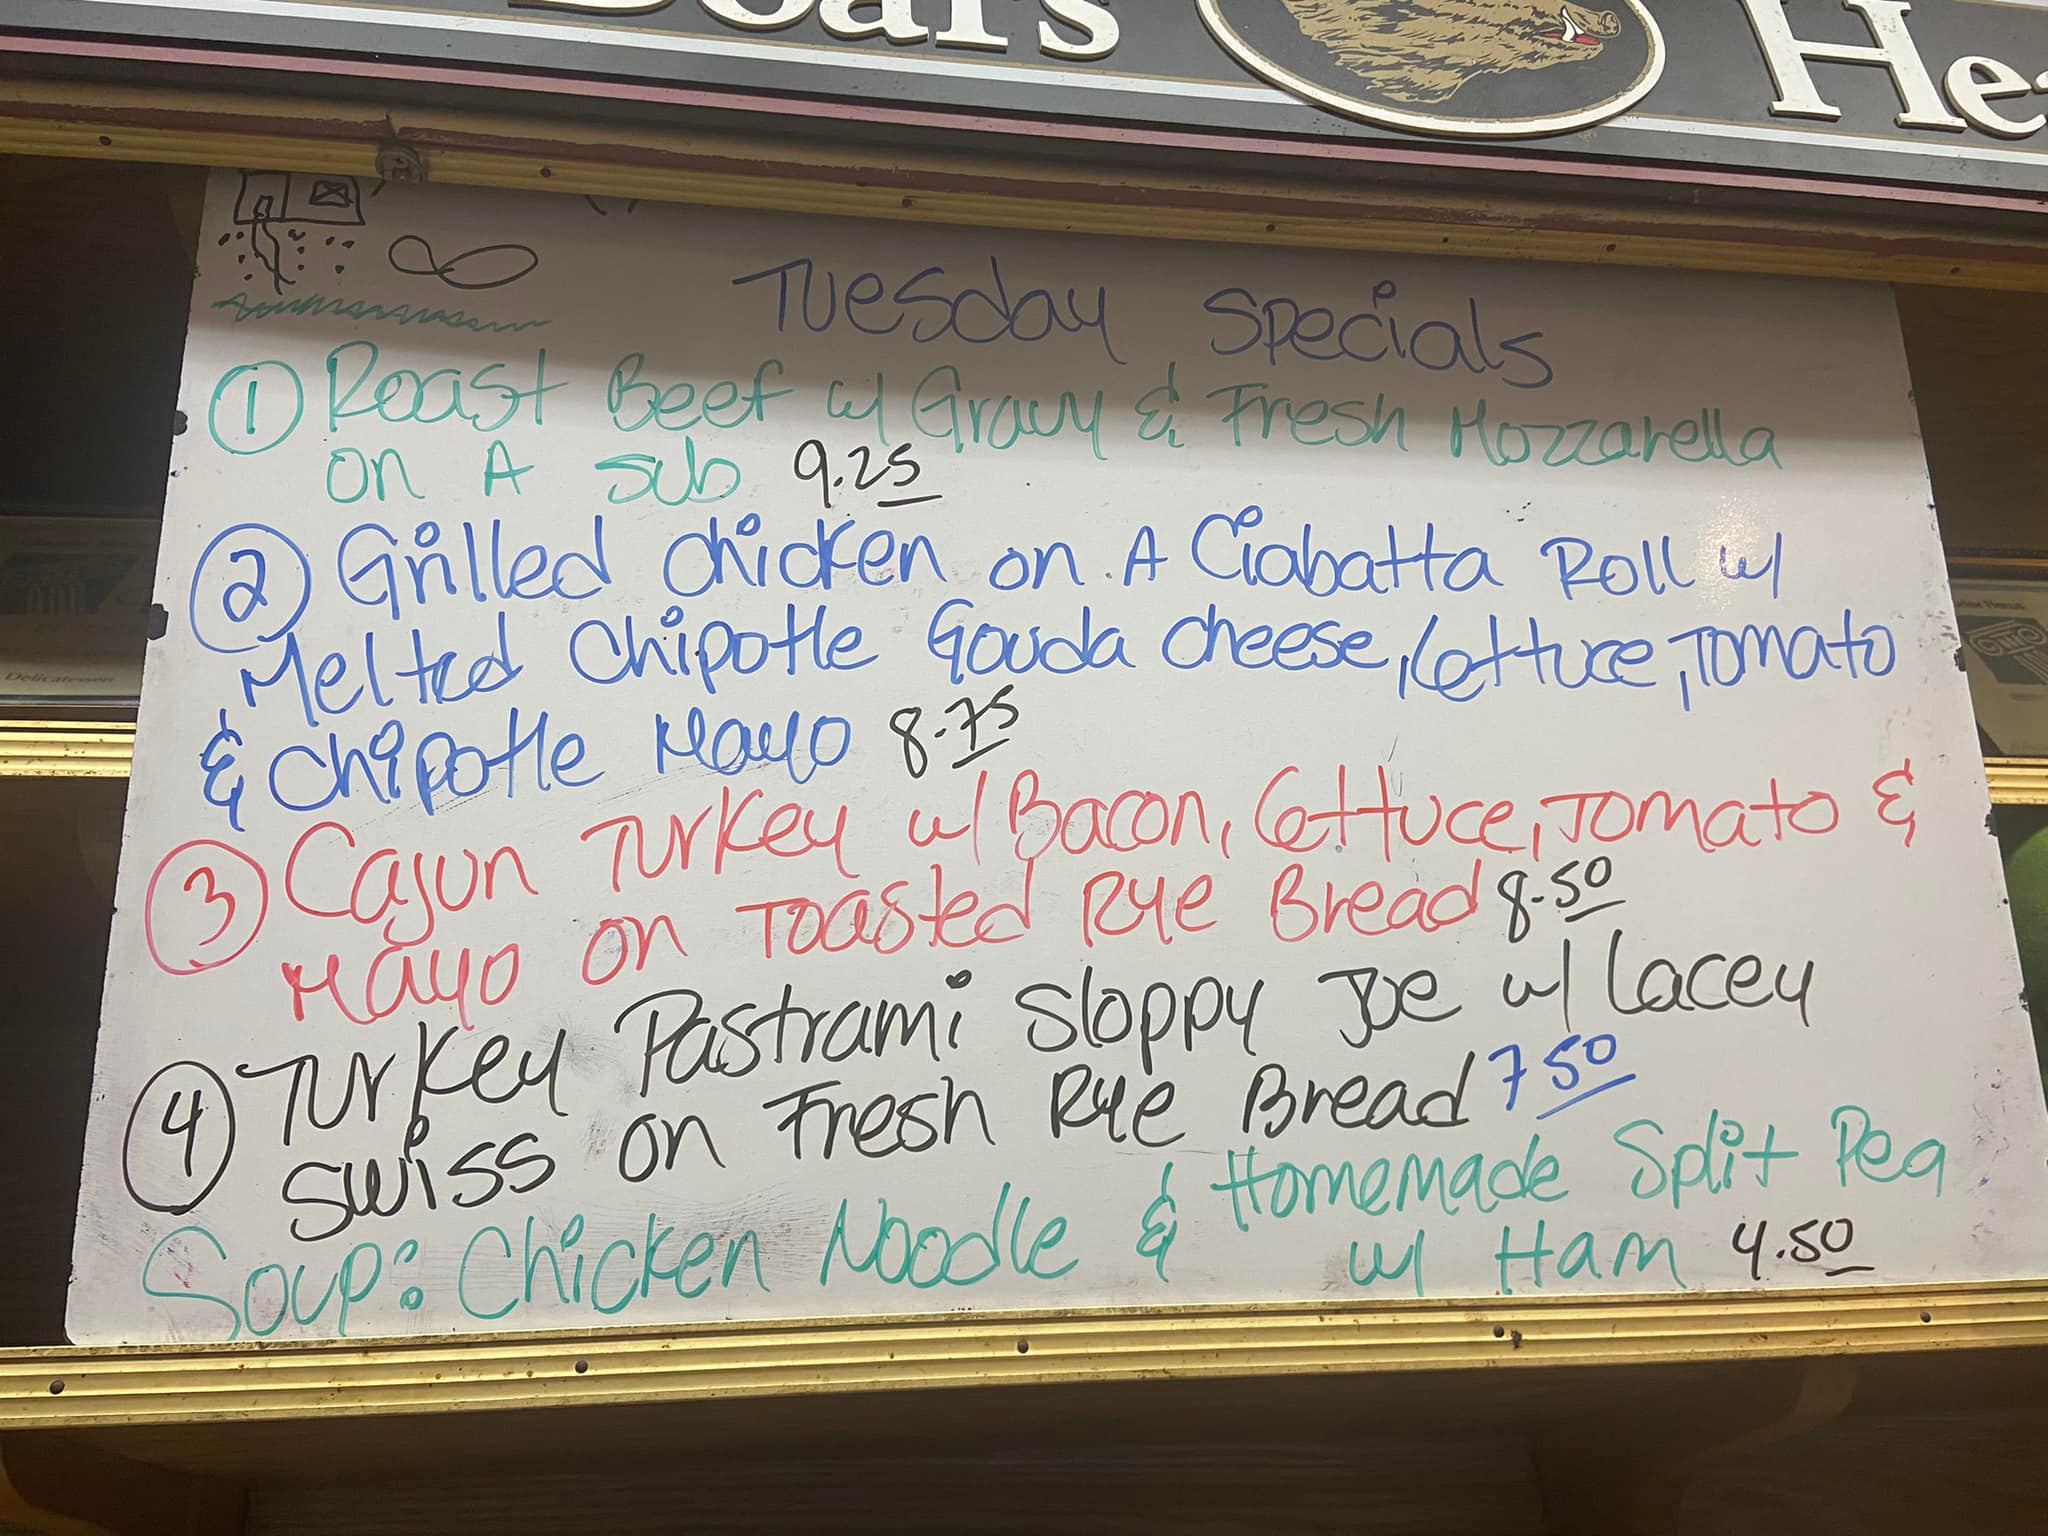 Boar's Hea
Tuesday Specials
1 Roast Beef w/ Gravy & Fresh Mozzarella
on A sub 9.25
2 Grilled chicken on A Ciabatta Roll w/
Melted Chipotle Gouda cheese, lettuce, Tomato
& Chipotle Mayo 8.75
3 Cajun Turkey w/ Bacon, lettuce, Tomato &
Mayo on Toasted Rye Bread 8.50
4 Turkey Pastrami Sloppy Joe w/ Lacey
swiss on Fresh Rye Bread 7 50
Soup: Chicken Noodle & Homemade Split Pea
w/ Ham 4.50
Delicatessen